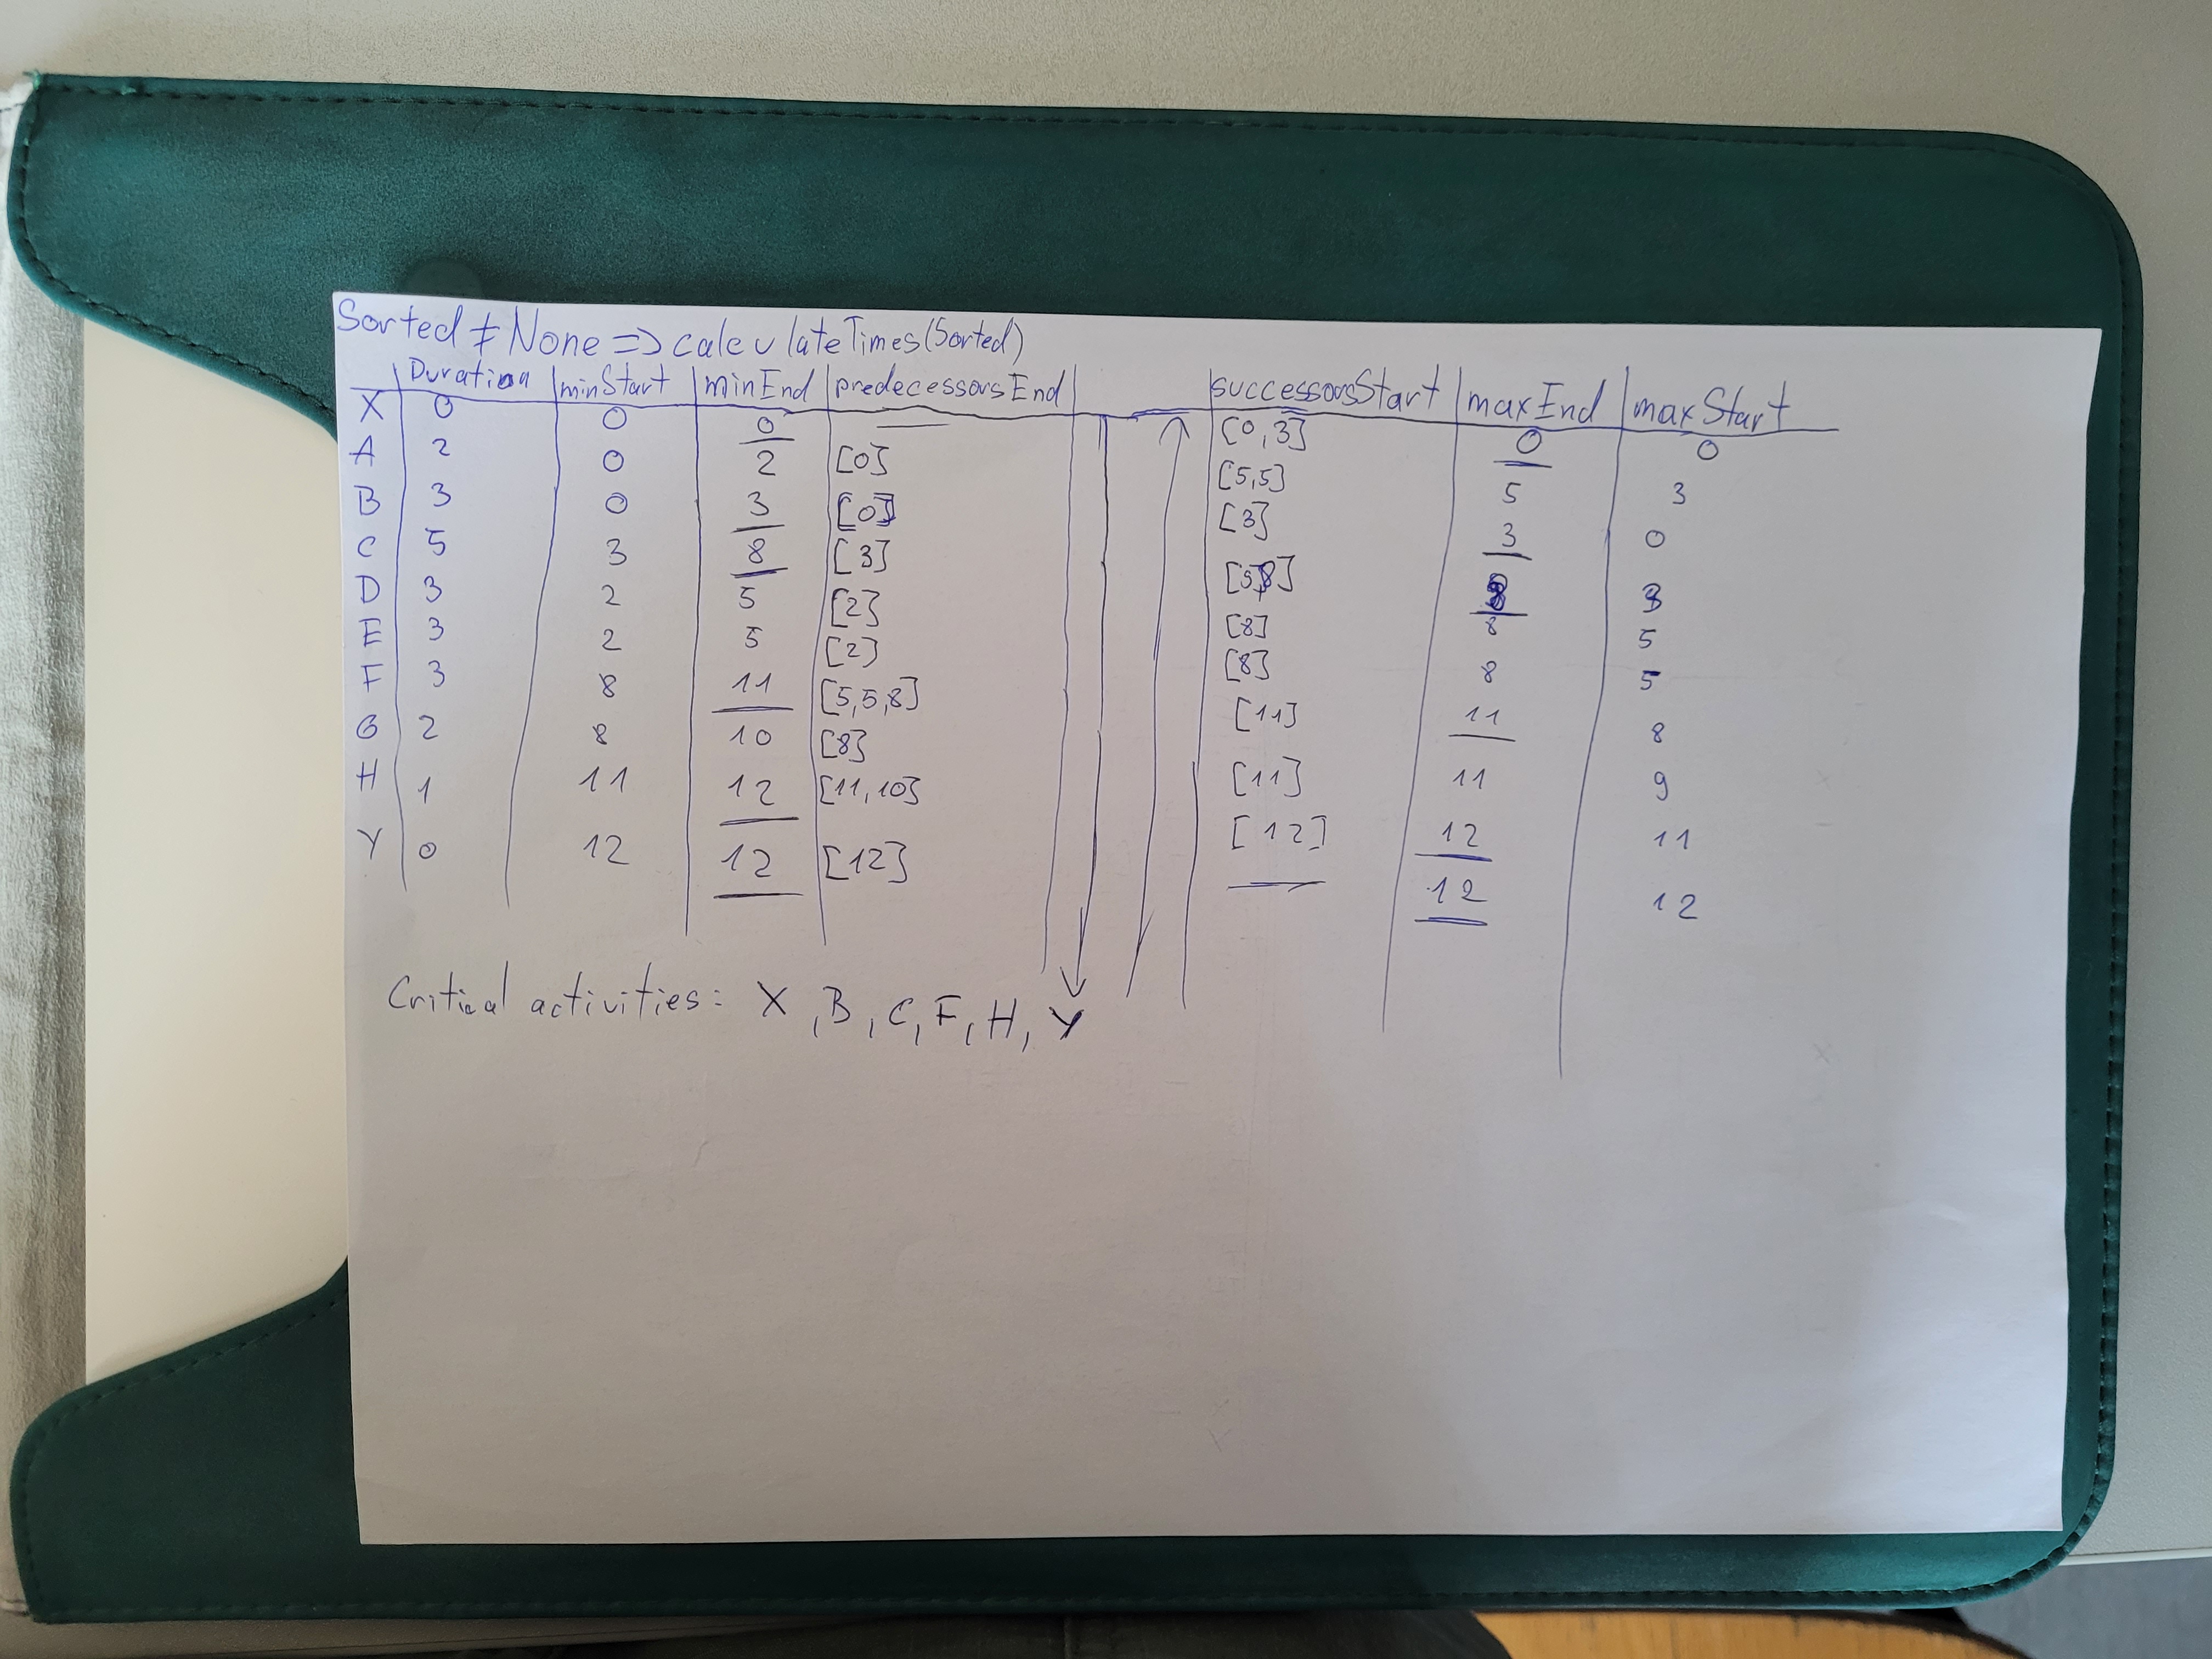 Sorted ≠ None => calculateTimes(Sorted)
Duration | minStart | minEnd | predecessorsEnd | successorsStart | maxEnd | maxStart
X 0 0 0 — [0,3] 0 0
A 2 0 2 [0] [5,5] 5 3
B 3 0 3 [0] [3] 3 0
C 5 3 8 [3] 8 3
D 3 2 5 [2] [8] 8 5
E 3 2 5 [2] [8] 8 5
F 3 8 11 [5,5,8] [11] 11 8
G 2 8 10 [8] [11] 11 9
H 1 11 12 [11,10] [12] 12 11
Y 0 12 12 [12] — 12 12
Critical activities: X, B, C, F, H, Y